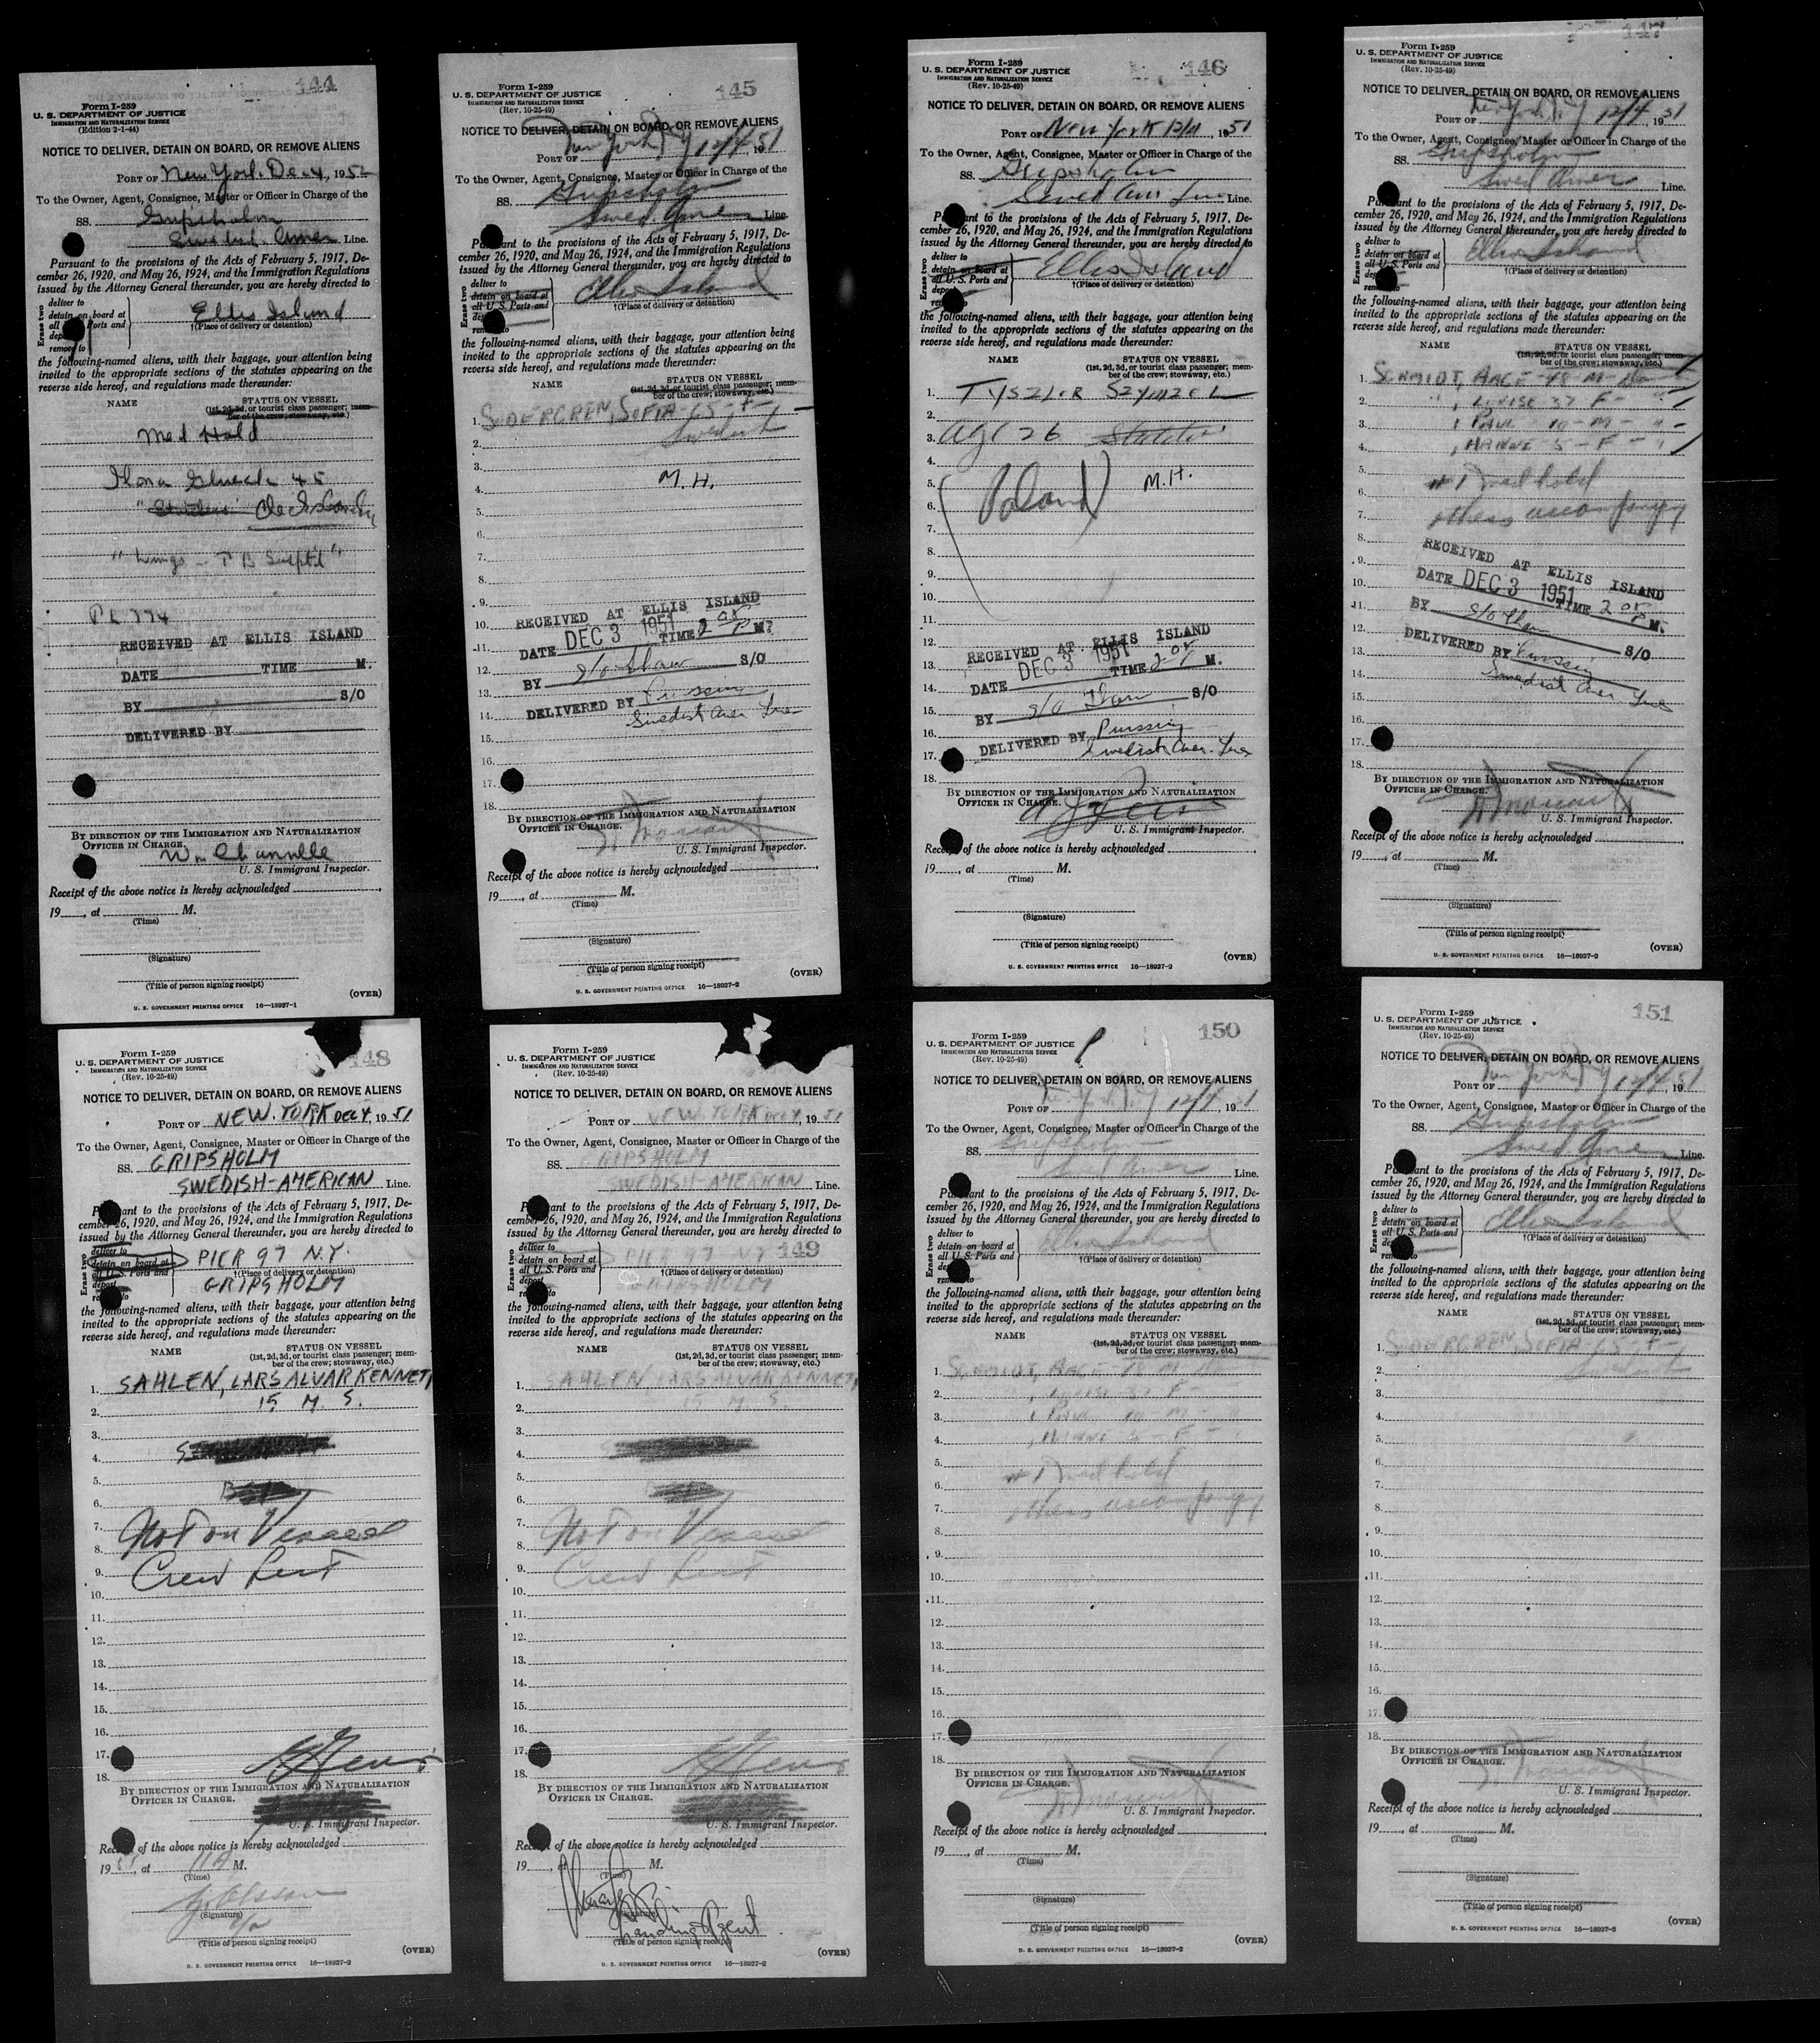 144
Form I-259
U. S. DEPARTMENT OF JUSTICE
IMMIGRATION AND NATURALIZATION SERVICE
(Edition 2-1-44)
NOTICE TO DELIVER, DETAIN ON BOARD, OR REMOVE ALIENS
PORT OF New York Dec 4, 195
To the Owner, Agent, Consignee, Master or Officer in Charge of the
SS. Gripsholm
Swedish Amer Line.
Pursuant to the provisions of the Acts of February 5, 1917, De-
cember 26, 1920, and May 26, 1924, and the Immigration Regulations
issued by the Attorney General thereunder, you are hereby directed to
Erase two
deliver to
detain on board at
all Ports and
remove to
Ellis Island
†(Place of delivery or detention)
the following-named aliens, with their baggage, your attention being
invited to the appropriate sections of the statutes appearing on the
reverse side hereof, and regulations made thereunder:
NAME STATUS ON VESSEL
(1st, 2d, 3d, or tourist class passenger; mem-
ber of the crew; stowaway, etc.)
Med Hold
Ilona Glueck 45
"Lungs - TB Susptd"
PL 774
RECEIVED AT ELLIS ISLAND
DATE TIME M.
BY S/O
DELIVERED BY
BY DIRECTION OF THE IMMIGRATION AND NATURALIZATION
OFFICER IN CHARGE.
U. S. Immigrant Inspector.
Receipt of the above notice is hereby acknowledged
19, at M.
(Time)
(Signature)
(Title of person signing receipt)
(OVER)
U. S. GOVERNMENT PRINTING OFFICE 16—18927-1
145
Form I-259
U. S. DEPARTMENT OF JUSTICE
IMMIGRATION AND NATURALIZATION SERVICE
(Rev. 10-25-49)
NOTICE TO DELIVER, DETAIN ON BOARD, OR REMOVE ALIENS
PORT OF New York NY 12/4 1951
To the Owner, Agent, Consignee, Master or Officer in Charge of the
SS. Gripsholm
Swed Amer Line
Pursuant to the provisions of the Acts of February 5, 1917, De-
cember 26, 1920, and May 26, 1924, and the Immigration Regulations
issued by the Attorney General thereunder, you are hereby directed to
Erase two
deliver to
detain on board at
all U.S. Ports and
Ellis Island
†(Place of delivery or detention)
the following-named aliens, with their baggage, your attention being
invited to the appropriate sections of the statutes appearing on the
reverse side hereof, and regulations made thereunder:
NAME STATUS ON VESSEL
(1st, 2d, 3d, or tourist class passenger; mem-
ber of the crew; stowaway, etc.)
1. SODERGREN, SOFIA - 65 - F -
2. Swedish
3.
4. M. H.
5.
6.
7.
8.
9.
10. RECEIVED AT ELLIS ISLAND
11. DATE DEC 3 1951 TIME 2 05 P M.
12. BY S/O Shaw S/O
13. DELIVERED BY Purssing
14. Swedish Amer Line
15.
16.
17.
18.
BY DIRECTION OF THE IMMIGRATION AND NATURALIZATION
OFFICER IN CHARGE.
U. S. Immigrant Inspector.
Receipt of the above notice is hereby acknowledged
19, at M.
(Time)
(Signature)
(Title of person signing receipt)
(OVER)
U. S. GOVERNMENT PRINTING OFFICE 16—18927-2
146
Form I-259
U. S. DEPARTMENT OF JUSTICE
IMMIGRATION AND NATURALIZATION SERVICE
(Rev. 10-25-49)
NOTICE TO DELIVER, DETAIN ON BOARD, OR REMOVE ALIENS
PORT OF New York 12/4, 1951
To the Owner, Agent, Consignee, Master or Officer in Charge of the
SS. Gripsholm
Swed Am Line Line.
Pursuant to the provisions of the Acts of February 5, 1917, De-
cember 26, 1920, and May 26, 1924, and the Immigration Regulations
issued by the Attorney General thereunder, you are hereby directed to
Erase two
deliver to
detain on board at
all U.S. Ports and
Ellis Island
†(Place of delivery or detention)
the following-named aliens, with their baggage, your attention being
invited to the appropriate sections of the statutes appearing on the
reverse side hereof, and regulations made thereunder:
NAME STATUS ON VESSEL
(1st, 2d, 3d, or tourist class passenger; mem-
ber of the crew; stowaway, etc.)
1. TYSZLER SZYMZEL
2.
3. age 26
4.
5. (Poland) M.H.
6.
7.
8.
9.
10.
11.
12. RECEIVED AT ELLIS ISLAND
13. DATE DEC 3 1951 TIME 2 05 P M.
14.
15. BY S/O Shaw S/O
16. DELIVERED BY Purssing
17. Swedish Amer. Line
18.
BY DIRECTION OF THE IMMIGRATION AND NATURALIZATION
OFFICER IN CHARGE.
U. S. Immigrant Inspector.
Receipt of the above notice is hereby acknowledged
19, at M.
(Time)
(Signature)
(Title of person signing receipt)
(OVER)
U. S. GOVERNMENT PRINTING OFFICE 16—18927-2
147
Form I-259
U. S. DEPARTMENT OF JUSTICE
IMMIGRATION AND NATURALIZATION SERVICE
(Rev. 10-25-49)
NOTICE TO DELIVER, DETAIN ON BOARD, OR REMOVE ALIENS
PORT OF New York NY 12/4 1951
To the Owner, Agent, Consignee, Master or Officer in Charge of the
SS. Gripsholm
Swed Amer Line.
Pursuant to the provisions of the Acts of February 5, 1917, De-
cember 26, 1920, and May 26, 1924, and the Immigration Regulations
issued by the Attorney General thereunder, you are hereby directed to
Erase two
deliver to
detain on board at
all U.S. Ports and
Ellis Island
†(Place of delivery or detention)
the following-named aliens, with their baggage, your attention being
invited to the appropriate sections of the statutes appearing on the
reverse side hereof, and regulations made thereunder:
NAME STATUS ON VESSEL
(1st, 2d, 3d, or tourist class passenger; mem-
ber of the crew; stowaway, etc.)
1. SCHMIDT, AAGE - 48 - M -
2. ", LOUISE 37 F - "
3. , PAUL 10 - M - "
4. , HANNE 5 - F - "
5. #1 med hold
6.
7. others accompanying
8.
9. RECEIVED AT ELLIS ISLAND
10. DATE DEC 3 1951 TIME 2 05 P M.
11. BY S/O Shaw
12. S/O
13. DELIVERED BY Purssing
14. Swedish Amer Line
15.
16.
17.
BY DIRECTION OF THE IMMIGRATION AND NATURALIZATION
OFFICER IN CHARGE.
U. S. Immigrant Inspector.
Receipt of the above notice is hereby acknowledged
19, at M.
(Time)
(Signature)
(Title of person signing receipt)
(OVER)
U. S. GOVERNMENT PRINTING OFFICE 16—18927-2
148
Form I-259
U. S. DEPARTMENT OF JUSTICE
IMMIGRATION AND NATURALIZATION SERVICE
(Rev. 10-25-49)
NOTICE TO DELIVER, DETAIN ON BOARD, OR REMOVE ALIENS
PORT OF NEW YORK DEC 4, 1951
To the Owner, Agent, Consignee, Master or Officer in Charge of the
SS. GRIPSHOLM
SWEDISH-AMERICAN Line.
Pursuant to the provisions of the Acts of February 5, 1917, De-
cember 26, 1920, and May 26, 1924, and the Immigration Regulations
issued by the Attorney General thereunder, you are hereby directed to
Erase two
deliver to
detain on board at
all U.S. Ports and
deport
PIER 97 N.Y.
†(Place of delivery or detention)
GRIPSHOLM
the following-named aliens, with their baggage, your attention being
invited to the appropriate sections of the statutes appearing on the
reverse side hereof, and regulations made thereunder:
NAME STATUS ON VESSEL
(1st, 2d, 3d, or tourist class passenger; mem-
ber of the crew; stowaway, etc.)
1. SAHLEN, LARS ALVAR KENNETH
2. 15 M. S.
3.
4.
5.
6.
7. Not on Vessel
8.
9. Crew List
10.
11.
12.
13.
14.
15.
16.
17.
18.
BY DIRECTION OF THE IMMIGRATION AND NATURALIZATION
OFFICER IN CHARGE.
U. S. Immigrant Inspector.
Receipt of the above notice is hereby acknowledged
1951, at 11A M.
(Time)
Olsson
(Signature)
(Title of person signing receipt)
(OVER)
U. S. GOVERNMENT PRINTING OFFICE 16—18927-2
Form I-259
U. S. DEPARTMENT OF JUSTICE
IMMIGRATION AND NATURALIZATION SERVICE
(Rev. 10-25-49)
NOTICE TO DELIVER, DETAIN ON BOARD, OR REMOVE ALIENS
PORT OF NEW YORK DEC 4, 1951
To the Owner, Agent, Consignee, Master or Officer in Charge of the
SS. GRIPSHOLM
SWEDISH-AMERICAN Line.
Pursuant to the provisions of the Acts of February 5, 1917, De-
cember 26, 1920, and May 26, 1924, and the Immigration Regulations
issued by the Attorney General thereunder, you are hereby directed to
Erase two
deliver to
detain on board at
all U.S. Ports and
deport
PIER 97 N.Y. 149
†(Place of delivery or detention)
GRIPSHOLM
the following-named aliens, with their baggage, your attention being
invited to the appropriate sections of the statutes appearing on the
reverse side hereof, and regulations made thereunder:
NAME STATUS ON VESSEL
(1st, 2d, 3d, or tourist class passenger; mem-
ber of the crew; stowaway, etc.)
1. SAHLEN, LARS ALVAR KENNETH
2. 15 M. S.
3.
4.
5.
6.
7. Not on Vessel
8.
9. Crew List
10.
11.
12.
13.
14.
15.
16.
17.
18.
BY DIRECTION OF THE IMMIGRATION AND NATURALIZATION
OFFICER IN CHARGE.
U. S. Immigrant Inspector.
Receipt of the above notice is hereby acknowledged
19, M.
(Time)
Landing Agent
(Title of person signing receipt)
(OVER)
U. S. GOVERNMENT PRINTING OFFICE 16—18927-2
150
Form I-259
U. S. DEPARTMENT OF JUSTICE
IMMIGRATION AND NATURALIZATION SERVICE
(Rev. 10-25-49)
NOTICE TO DELIVER, DETAIN ON BOARD, OR REMOVE ALIENS
PORT OF New York NY 12/4, 1951
To the Owner, Agent, Consignee, Master or Officer in Charge of the
SS. Gripsholm
Swed Amer Line.
Pursuant to the provisions of the Acts of February 5, 1917, De-
cember 26, 1920, and May 26, 1924, and the Immigration Regulations
issued by the Attorney General thereunder, you are hereby directed to
Erase two
deliver to
detain on board at
all U.S. Ports and
Ellis Island
†(Place of delivery or detention)
the following-named aliens, with their baggage, your attention being
invited to the appropriate sections of the statutes appearing on the
reverse side hereof, and regulations made thereunder:
NAME STATUS ON VESSEL
(1st, 2d, 3d, or tourist class passenger; mem-
ber of the crew; stowaway, etc.)
1. SCHMIDT, AAGE 48 M
2. , LOUISE 37 F -
3. , PAUL 10 M -
4. , HANNE 5 - F -
5. #1 med hold
6.
7. others accompanying
8.
9.
10.
11.
12.
13.
14.
15.
16.
17.
18.
BY DIRECTION OF THE IMMIGRATION AND NATURALIZATION
OFFICER IN CHARGE.
U. S. Immigrant Inspector.
Receipt of the above notice is hereby acknowledged
19, at M.
(Time)
(Signature)
(Title of person signing receipt)
(OVER)
U. S. GOVERNMENT PRINTING OFFICE 16—18927-2
151
Form I-259
U. S. DEPARTMENT OF JUSTICE
IMMIGRATION AND NATURALIZATION SERVICE
(Rev. 10-25-49)
NOTICE TO DELIVER, DETAIN ON BOARD, OR REMOVE ALIENS
PORT OF New York NY 12/4 1951
To the Owner, Agent, Consignee, Master or Officer in Charge of the
SS. Gripsholm
Swed Amer Line.
Pursuant to the provisions of the Acts of February 5, 1917, De-
cember 26, 1920, and May 26, 1924, and the Immigration Regulations
issued by the Attorney General thereunder, you are hereby directed to
Erase two
deliver to
detain on board at
all U.S. Ports and
Ellis Island
†(Place of delivery or detention)
the following-named aliens, with their baggage, your attention being
invited to the appropriate sections of the statutes appearing on the
reverse side hereof, and regulations made thereunder:
NAME STATUS ON VESSEL
(1st, 2d, 3d, or tourist class passenger; mem-
ber of the crew; stowaway, etc.)
1. SODERGREN, SOFIA 65 - F -
2. Swedish
3.
4.
5.
6.
7.
8.
9.
10.
11.
12.
13.
14.
15.
16.
17.
18.
BY DIRECTION OF THE IMMIGRATION AND NATURALIZATION
OFFICER IN CHARGE.
U. S. Immigrant Inspector.
Receipt of the above notice is hereby acknowledged
19, at M.
(Time)
(Signature)
(Title of person signing receipt)
(OVER)
U. S. GOVERNMENT PRINTING OFFICE 16—18927-2